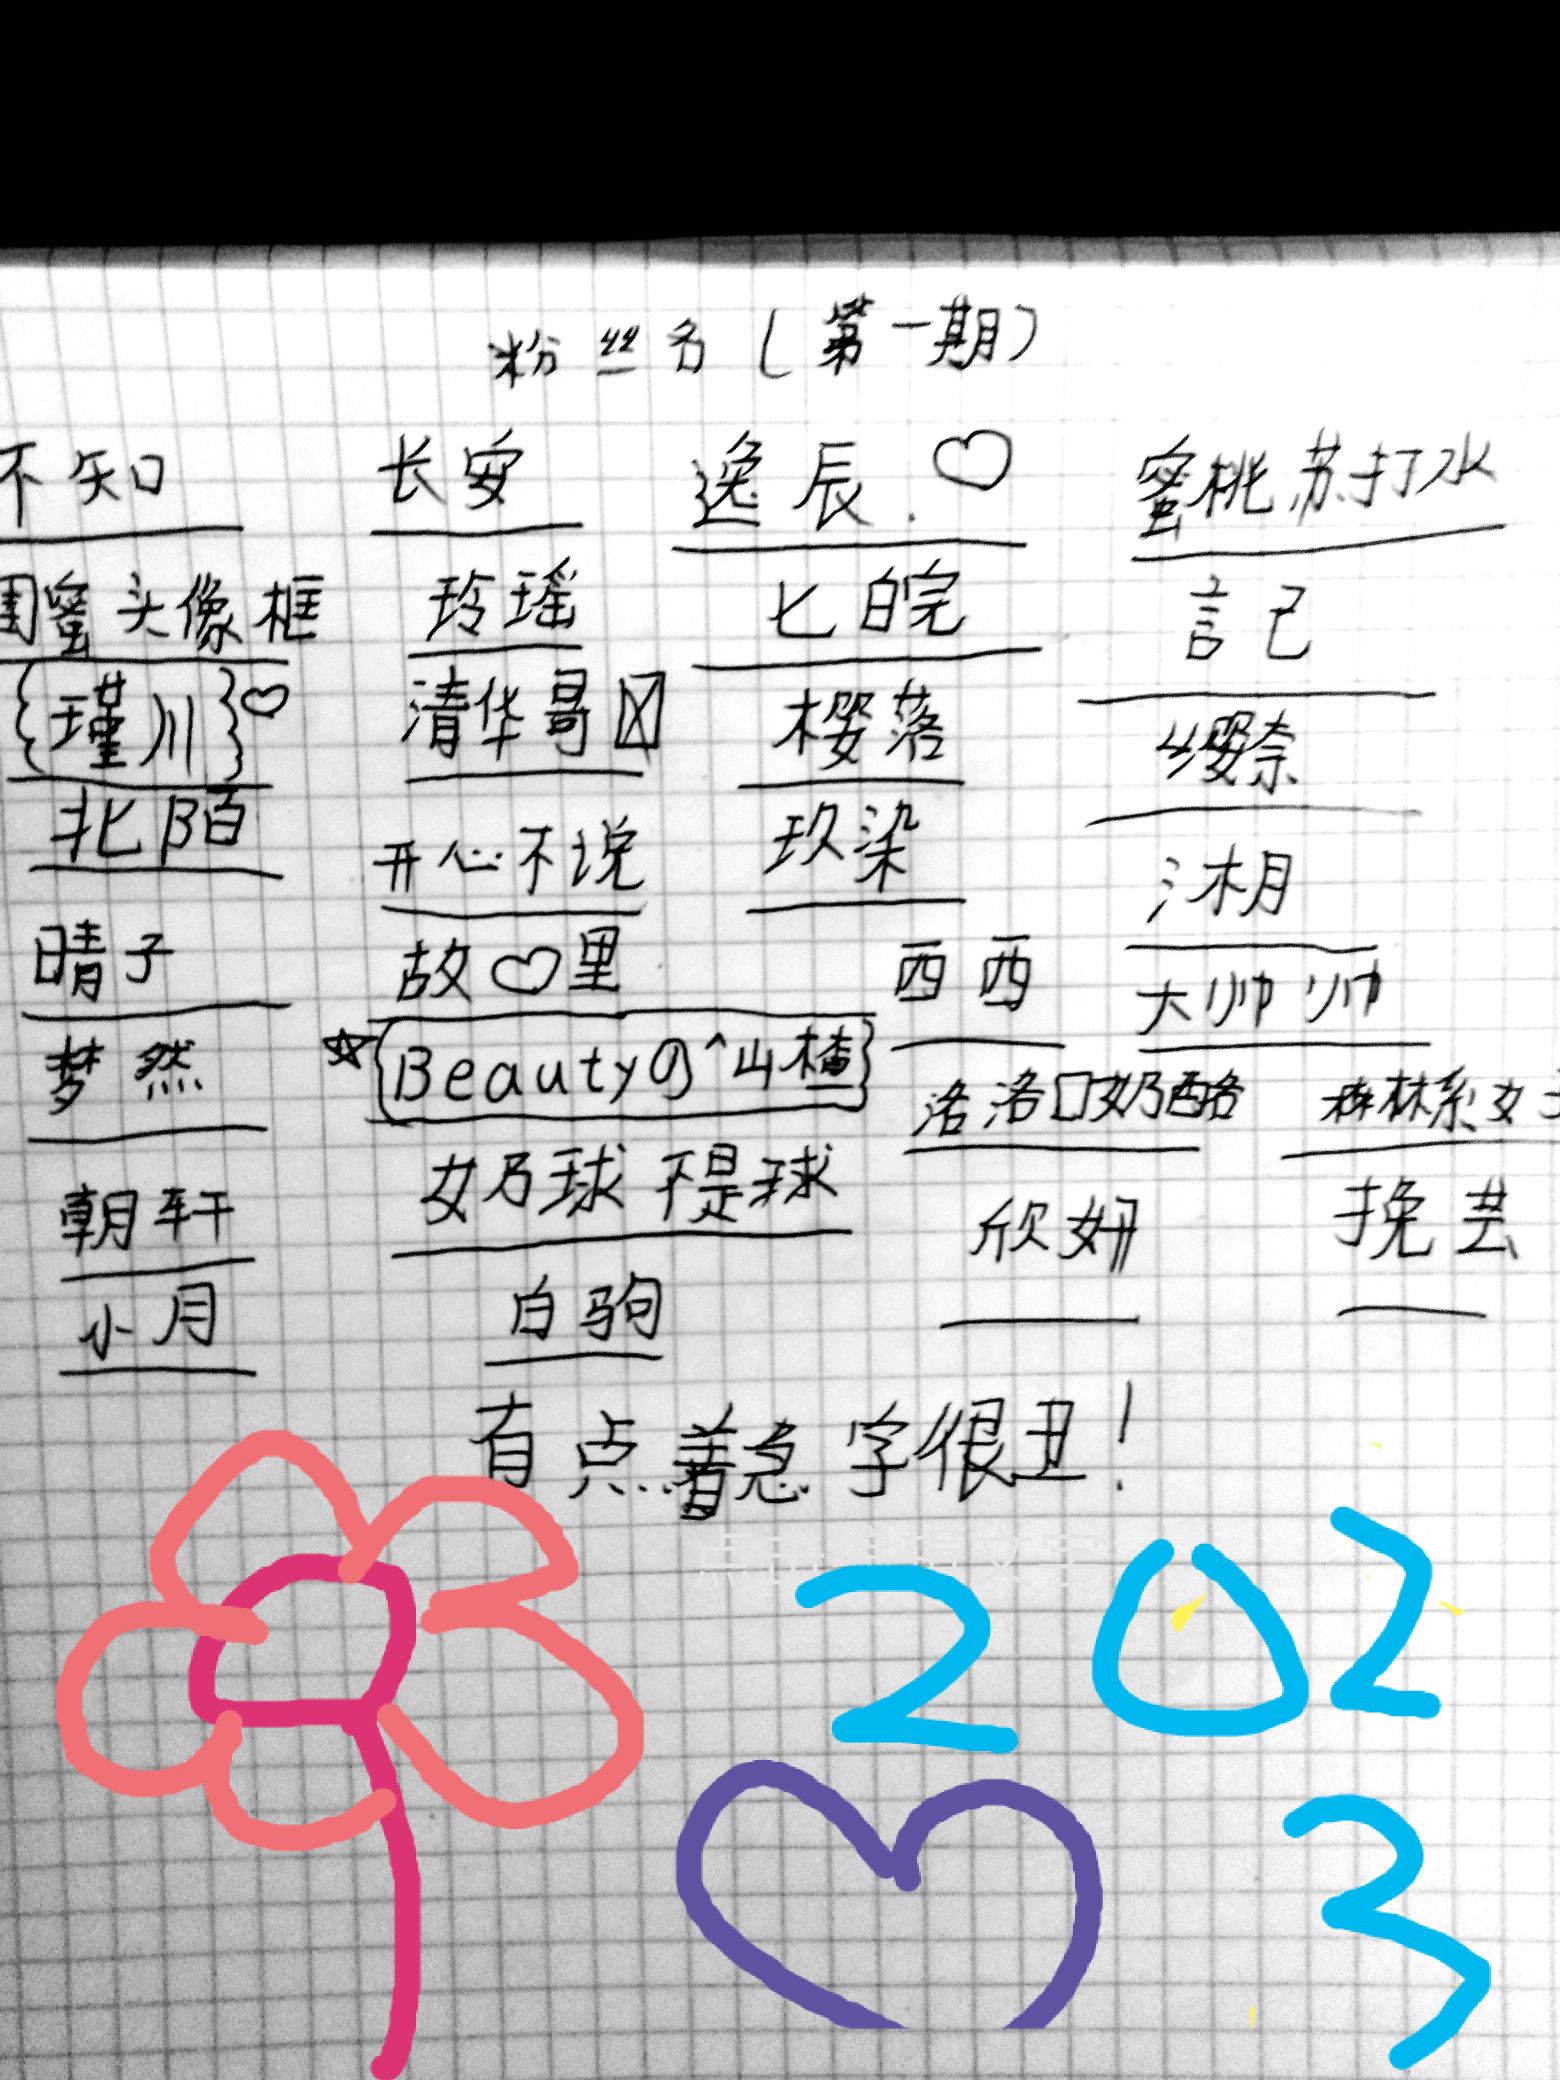 粉丝名(第一期)
不知 长安 逸辰. ♡ 蜜桃苏打水
闺蜜头像框 玲瑶 匕皖 言己
{瑾川}♡ 清华哥 樱落 缨奈
北陌 开心不说 玖染 沐月
晴子 故♡里 西西 大帅帅
梦然 ☆{Beautyの^山楂} 洛洛口奶酪 森林系女子
朝轩 奶球不是球 欣妍 挽芸
小月 白驹
有点着急字很丑!
点击编辑文字
202
3